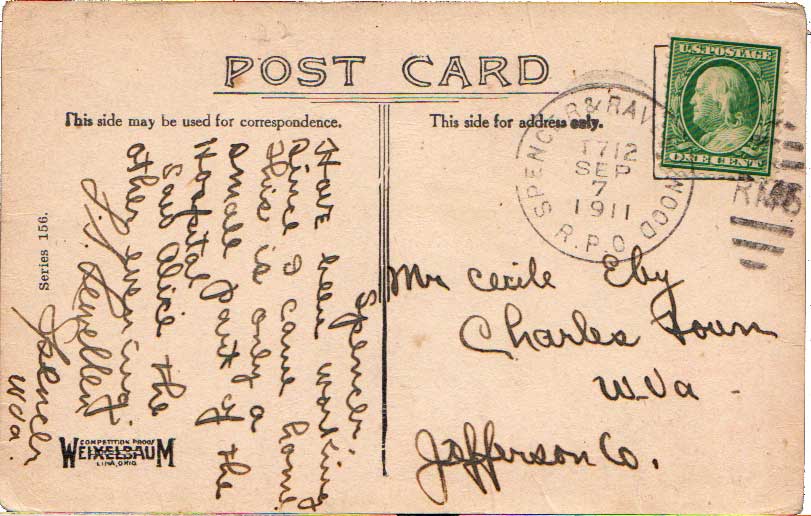 POST CARD
This side may be used for correspondence.
This side for address only.
U.S. POSTAGE
ONE CENT
SPENCER & RAVENSWOOD R.P.O.
T712
SEP
7
1911
RMS
Spencer
Have been working
since I came home
this is only a
small Part of the
Hospital
Saw Alice the
other evening.
Spencer
W Va.
Mr Cecile Eby
Charles Town
W.Va
Jefferson Co.
Series 156.
COMPETITION PROOF
WEIXELBAUM
LIMA, OHIO